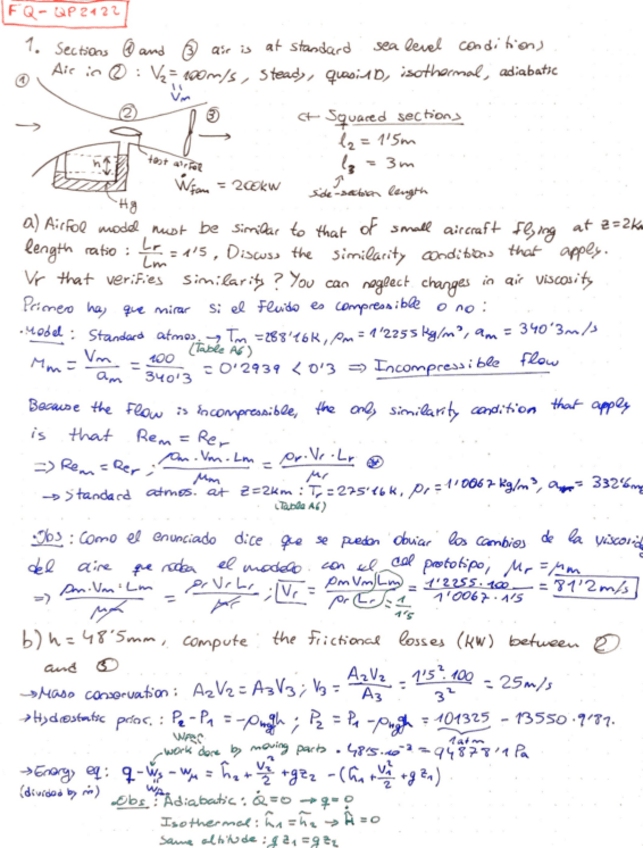 FQ-QP2122
1. Sections ① and ③ air is at standard sea level conditions
Air in ②: V₂=100m/s, steady, quasi1D, isothermal, adiabatic
Vm
①
②
③
h
test airfoil
Hg
Ẇfan = 200kW
Squared sections
l₂ = 1'5m
l₃ = 3m
side-section length
a) Airfoil model must be similar to that of small aircraft flying at z=2km
length ratio: Lr/Lm = 1'5, Discuss the similarity conditions that apply.
Vr that verifies similarity? You can neglect changes in air viscosity
Primero hay que mirar si el fluido es compressible o no:
·Model: Standard atmos. → Tm=288'16K, ρm=1'2255kg/m³, am = 340'3m/s
(Table A6)
Mm = Vm/am = 100/340'3 = 0'2939 < 0'3 ⇒ Incompressible flow
Because the flow is incompressible, the only similarity condition that apply
is that Rem = Rer
⇒ Rem = Rer; ρm·Vm·Lm/μm = ρr·Vr·Lr/μr ⊛
→ Standard atmos. at z=2km: Tr=275'16K, ρr=1'0067kg/m³, ar= 332'6m
(Table A6)
·Obs: Como el enunciado dice que se pueden obviar los cambios de la viscosid
del aire que rodea el modelo con el del prototipo, μr = μm
⇒ ρm·Vm·Lm/μm = ρr Vr Lr/μr; Vr = ρm Vm Lm/ρr Lr = 1'2255·100/1'0067·1'5 = 81'2m/s
1/1'5
b) h = 48'5mm, compute the frictional losses (kW) between ②
and ③
→Mass conservation: A₂V₂=A₃V₃; V₃ = A₂V₂/A₃ = 1'5²·100/3² = 25m/s
→Hydrostatic princ.: P₂-P₁ = -ρHg gh; P₂ = P₁ - ρHg gh = 101325 - 13550·9'81·
1atm
work done by moving parts ·48'5·10⁻³ = 94878'1Pa
→Energy eq: q - ws - wμ = ĥ₂ + V₂²/2 + gz₂ - (ĥ₁ + V₁²/2 + gz₁)
(divided by ṁ)
Obs: Adiabatic: Q̇=0 → q=0
Isothermal: ĥ₁=ĥ₂ → Ḣ=0
Same altitude: gz₁=gz₂